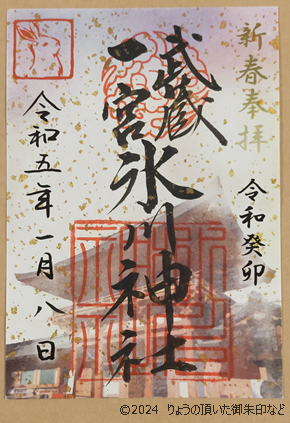 新春奉拝
令和癸卯
武蔵
一宮氷川神社
令和五年一月八日
©2024 りょうの頂いた御朱印など